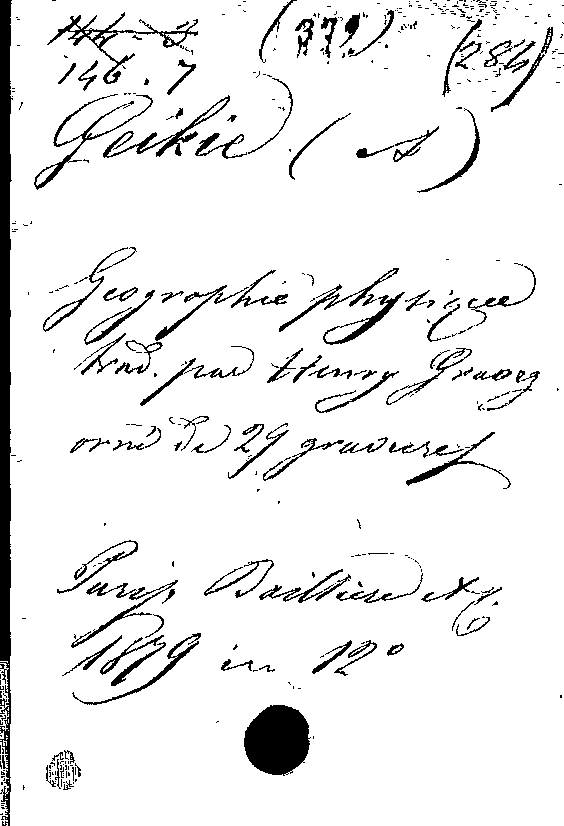 144-3 (379) (284)
146.7
Geikie (A)
Géographie physique
trad. par Henry Gravez
orné de 29 gravures
Paris, Baillière et C.
1879 in 12°